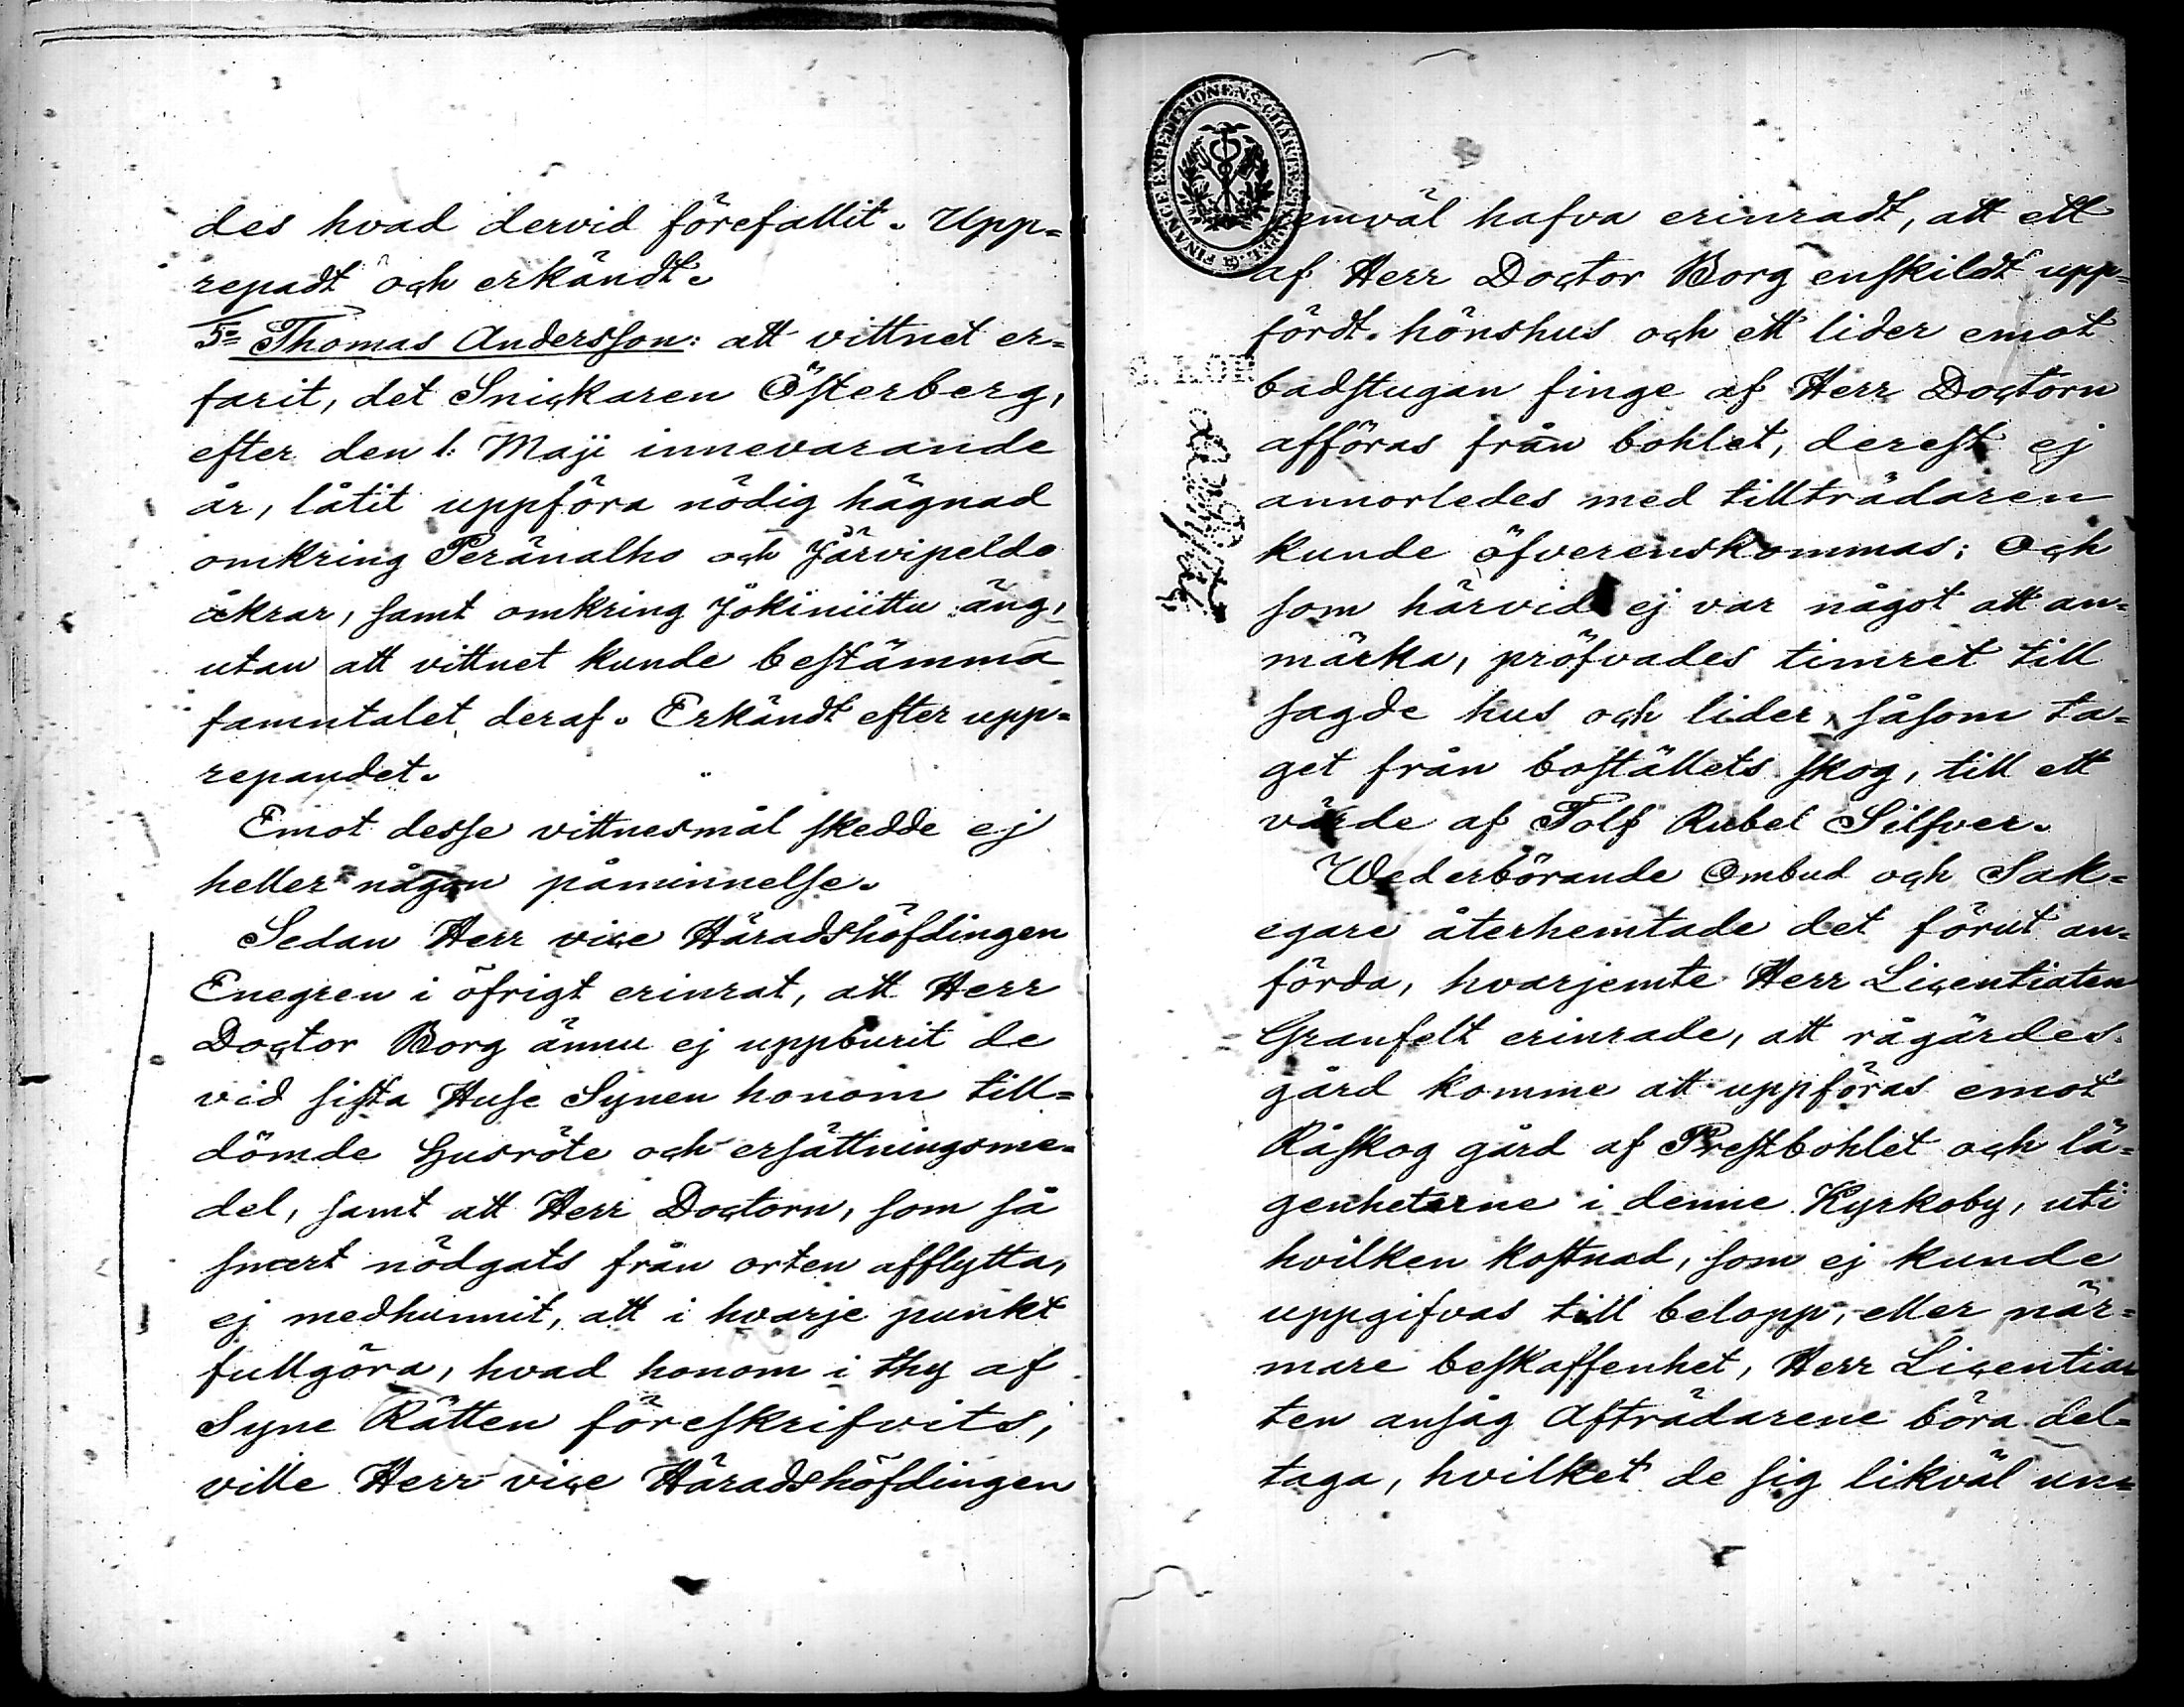 des hvad dervid förefallit. Upp=
repadt och erkändt.
5= Thomas Andersson: att vittnet er=
farit, det Snickaren Österberg,
efter den 1: Maji innevarande
år, låtit uppföra nödig hägnad
omkring Peränalho och Järvipeldo
åkrar, samt omkring Jokiniittu äng,
utan att vittnet kunde bestämma
famntalet deraf. Erkändt efter upp=
repandet.
Emot desse vittnesmål skedde ej
heller någon påminnelse.
Sedan Herr vice Häradshöfdingen
Enegren i öfrigt erinrat, att Herr
Doctor Borg ännu ej uppburit de
vid sista Huse Synen honom till=
dömde Husröte och ersättningsme=
del, samt att Herr Doctorn, som så
snart nödgats från orten afflytta,
ej medhunnit, att i hvarje punkt
fullgöra, hvad honom i thy af
Syne Rätten föreskrifvits,
ville Herr vice Häradshöfdingen
FINANCE EXPEDITIONENS CHARTÆ
jemväl hafva erinradt, att ett
af Herr Doctor Borg enskildt upp=
fördt hönshus och ett lider emot
badstugan finge af Herr Doctorn
afföras från bohlet, derest ej
annorledes med tillträdaren
kunde öfverenskommas; Och
som härvid ej var något att an=
märka, pröfvades timret till
sagde hus och lider, såsom ta=
get från boställets skog, till ett
värde af Tolf Rubel Silfver.
Wederbörande Ombud och Sak=
egare återhemtade det förut an=
förda, hvarjemte Herr Licentiaten
Granfelt erinrade, att rågärdes
gård komme att uppföras emot
Råskog gård af Prestbohlet och lä=
genheterne i denne Kyrkoby, uti
hvilken kostnad, som ej kunde
uppgifvas till belopp, eller när=
mare beskaffenhet, Herr Licentia=
ten ansåg Afträdarene böra del=
taga, hvilket de sig likväl un=